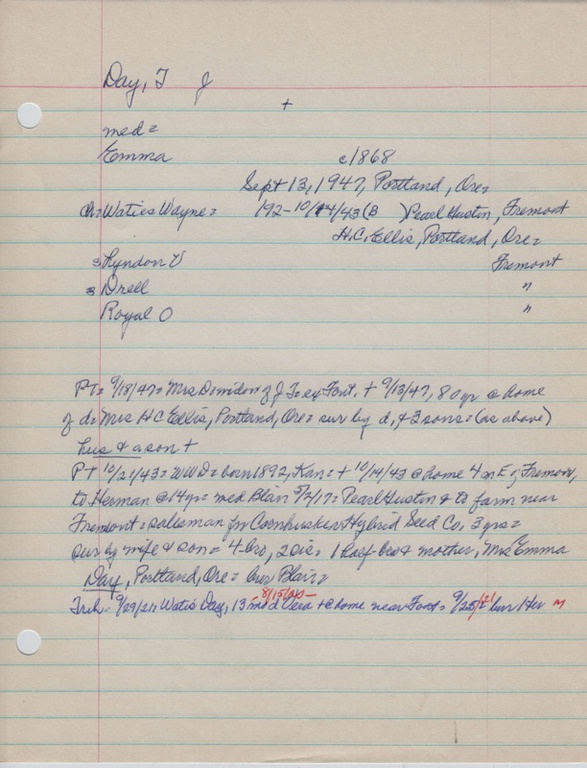 Day, T J
+
med=
Emma c1868
Sept 13, 1947, Portland, Ore=
ch= Waties Wayne= 192-10/14/43 (B ) Pearl Huston, Fremont
H.C. Ellis, Portland, Ore=
s Lyndon V Fremont
s Drell "
Royal O "
PT= 9/18/47= Mrs D= widow of J T= ex Font. + 9/13/47, 80 yr @ home
of d= Mrs H C Ellis, Portland, Ore= sur by d, & 3 sons= (as above)
hus & a son +
PT 10/21/43= WWD= born 1892, Kan= + 10/14/43 @ home 4 m E of Fremont,
to Herman @ 14 yr= med Blair 5/2/17= Pearl Huston & to farm near
Fremont= salesman for Cornhusker Hybrid Seed Co. 3 yrs=
sur by wife & son= 4 bro, 2 sis= 1 half-bro & mother, Mrs Emma
Day, Portland, Ore= bur Blair=
8/15/
Trib= 9/29/21= Watis Day, 13 mo d Vera + @ home near Font= 9/25/21= bur Her M